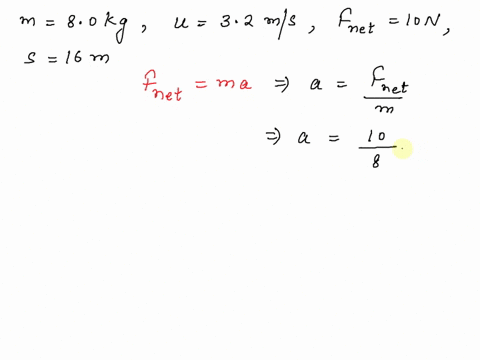 m = 8.0 kg , u = 3.2 m/s , Fnet = 10N ,
s = 16 m
Fnet = ma ⇒ a = Fnet/m
⇒ a = 10/8